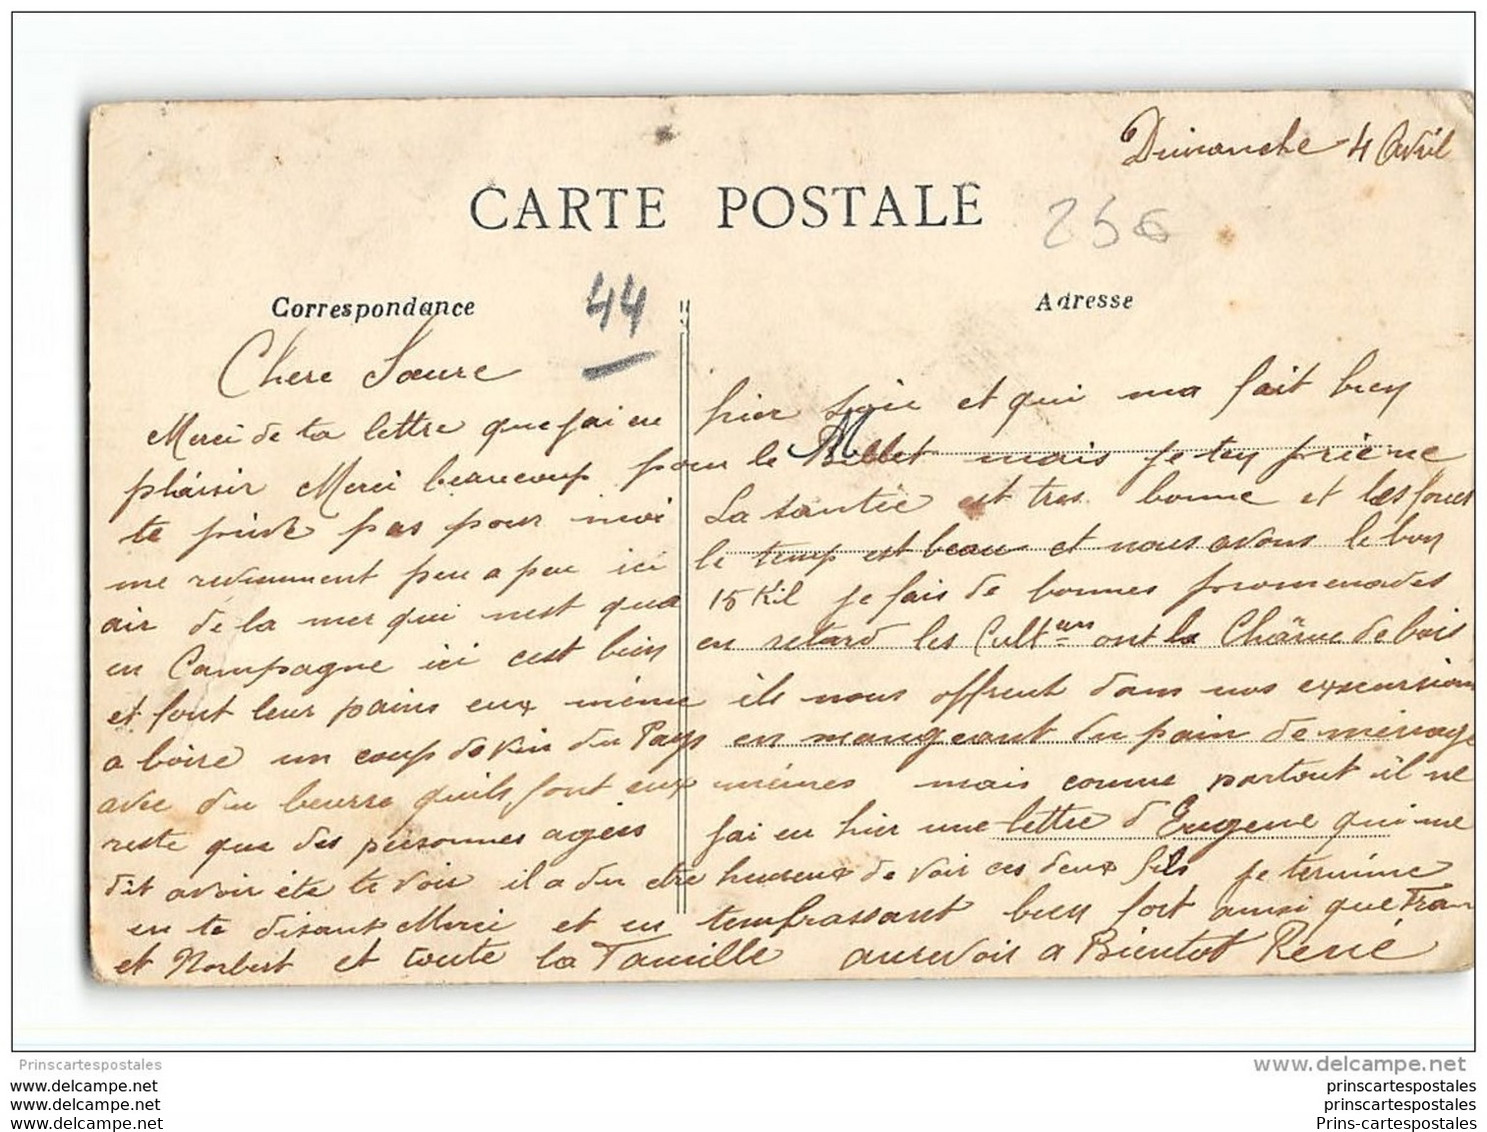 Dimanche 4 Avril
CARTE POSTALE
256
44
Correspondance
Adresse
Chere Soeure
Merci de ta lettre que jai eu hier soir et qui ma fait bien
plaisir Merci beaucoup pour le Billet mais je ten prie ne
te prive pas pour moi La santée est tres bonne et les forces
me reviennent peu a peu ici le temp est beau et nous avons le bon
air de la mer qui nest qua 15 Kil je fais de bonnes promenades
en Campagne ici cest bien en retard les Cultans ont la Charue de bois
et font leur pains eux même ils nous offrent dans nos excursions
a boire un coup de Vin du Pays en mangeant du pain de menage
avec du beurre quils font eux mêmes mais comme partout il ne
reste que des personnes agées jai eu hier une lettre d'Eugene qui me
dit avoir été te voir il a du etre heureux de voir ces deux fils je termine
en te disant Merci et en tembrassant bien fort ainsi que Fran
et Norbert et toute la Famille aurevoir a Bientot René
Prinscartespostales
www.delcampe.net
www.delcampe.net
prinscartespostales
www.delcampe.net
prinscartespostales
www.delcampe.net
Prins-cartespostales